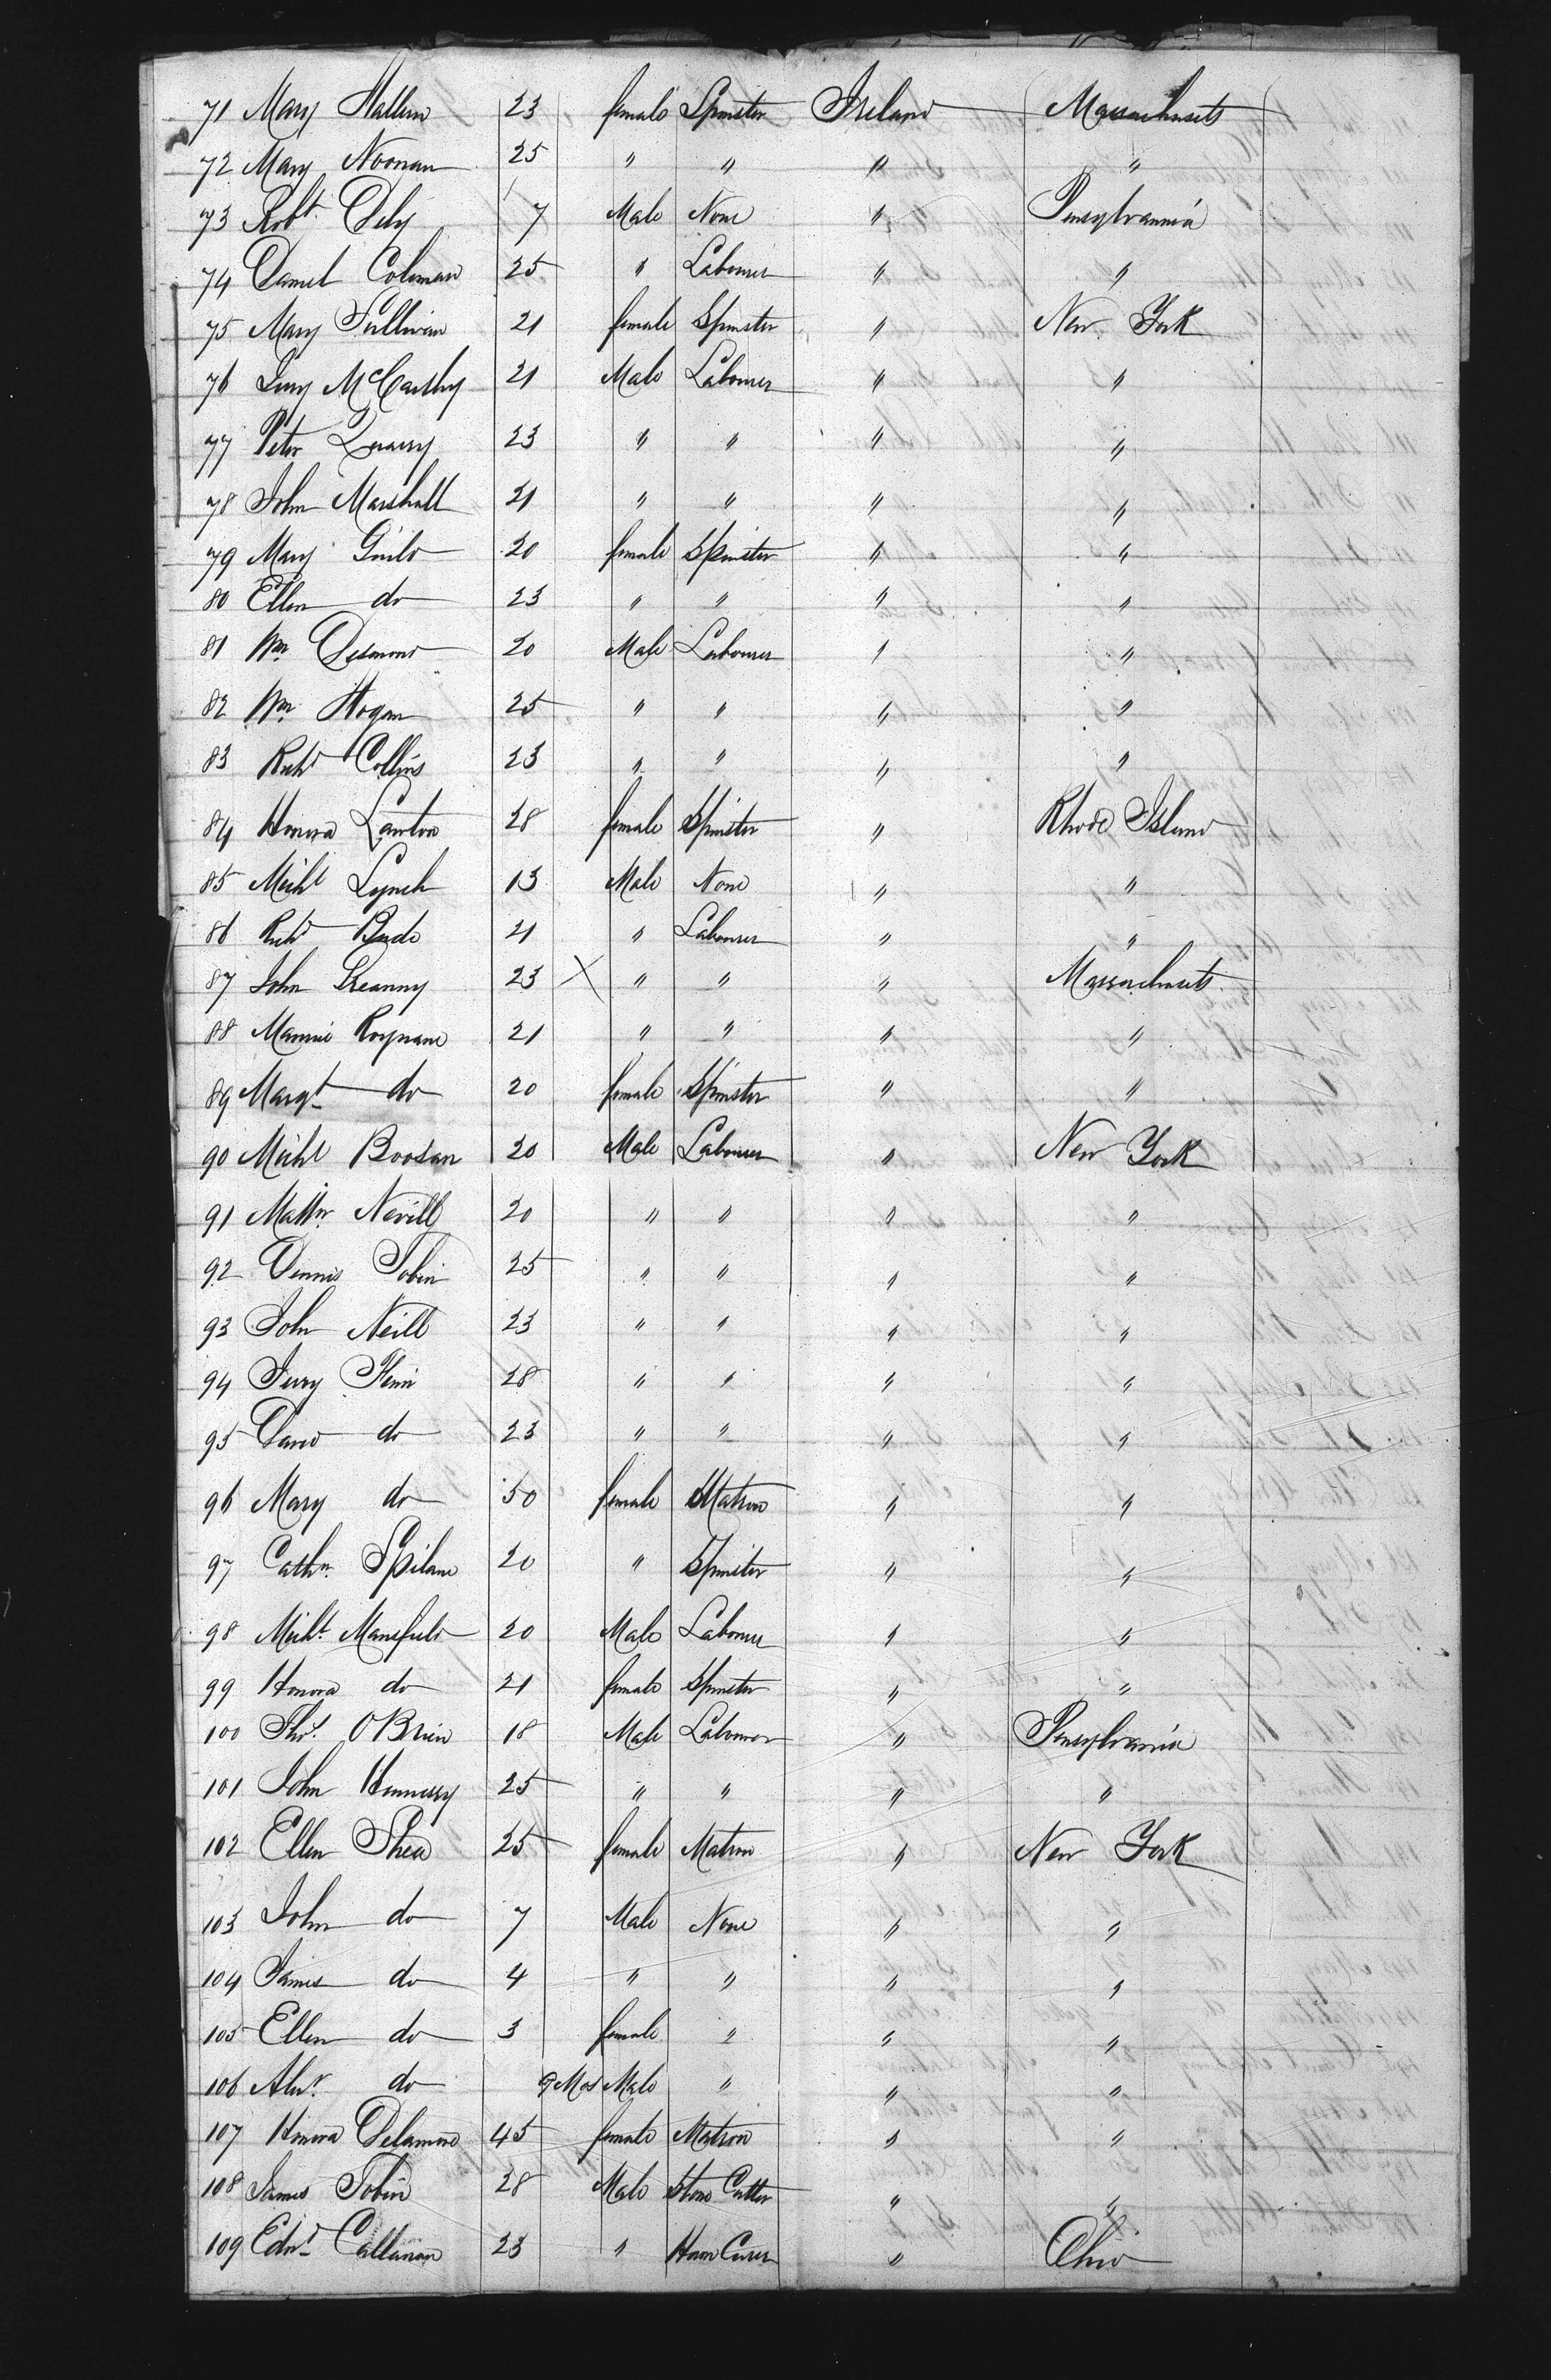 71 Mary Hallern 23 female Spinster Ireland Massachusets
72 Mary Noonan 25 " " " "
73 Robt. 7 Male None " Pensylvannia
74 Daniel Coleman 25 " Labourer " "
75 Mary Sullivan 21 female Spinster " New York
76 Jerry McCarthy 21 Male Labourer " "
77 Peter 23 " " " "
78 John Marshall 21 " " " "
79 Mary 20 female Spinster " "
80 Ellen do 23 " " " "
81 Wm. Desmond 20 Male Labourer " "
82 Wm. Hogan 25 " " " "
83 Richd Collins 23 " " " "
84 Honora Lawton 28 female Spinster " Rhode Island
85 Michl Lynch 13 Male None " "
86 Richd 21 " Labourer " "
87 John 23 X " " " Massachusets
88 21 " " " "
89 Margt. do 20 female Spinster " "
90 Michl 20 Male Labourer " New York
91 Matthw. Nevill 20 " " " "
92 Dennis Tobin 25 " " " "
93 John Neill 23 " " " "
94 Jerry Flinn 28 " " " "
95 David do 23 " " " "
96 Mary do 50 female Matron " "
97 Cathn. Spilane 20 " Spinster " "
98 Michl. Mansfield 20 Male Labourer " "
99 Honora do 21 female Spinster " "
100 Thos. OBrien 18 Male Labourer " Pensylvania
101 John Hennessy 25 " " " "
102 Ellen Shea 25 female Matron " New York
103 John do 7 Male None " "
104 James do 4 " " " "
105 Ellen do 3 female " " "
106 Alexr. do 9 Mos Male " " "
107 Honora Delamore 45 female Matron " "
108 James Tobin 28 Male Stone Cutter " "
109 Edwd. Callanan 23 " Ham Curer " Ohio